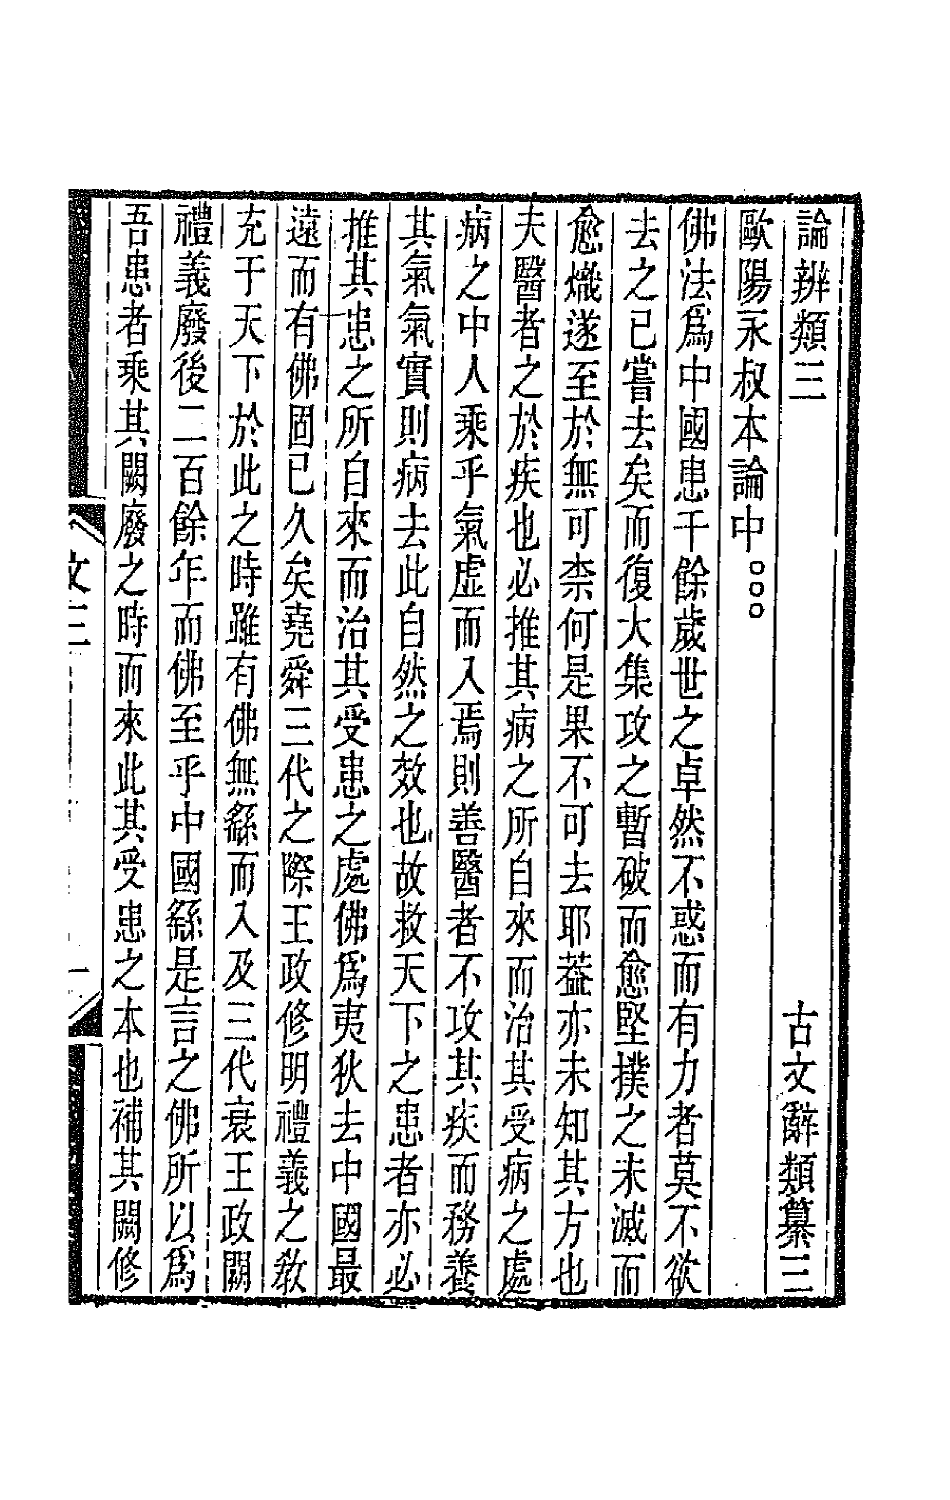 論辨類三　古文辭類纂三
歐陽永叔本論中○○○
佛法爲中國患千餘歲世之卓然不惑而有力者莫不欲
去之已嘗去矣而復大集攻之暫破而愈堅撲之未滅而
愈熾遂至於無可柰何是果不可去耶葢亦未知其方也
夫醫者之於疾也必推其病之所自來而治其受病之處
病之中人乘乎氣虛而入焉則善醫者不攻其疾而務養
其氣氣實則病去此自然之效也故救天下之患者亦必
推其患之所自來而治其受患之處佛爲夷狄去中國最
遠而有佛固已久矣堯舜三代之際王政修明禮義之敎
充于天下於此之時雖有佛無繇而入及三代衰王政闕
禮義廢後二百餘年而佛至乎中國繇是言之佛所以爲
吾患者乘其闕廢之時而來此其受患之本也補其闕修
文三
一